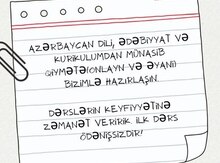 AZƏRBAYCAN DİLİ, ƏDƏBİYYAT VƏ
KURİKULUMDAN MÜNASİB
QİYMƏTƏ(ONLAYN VƏ ƏYANİ)
BİZİMLƏ HAZIRLAŞIN.
DƏRSLƏRİN KEYFİYYƏTİNƏ
ZƏMANƏT VERİRİK. İLK DƏRS
ÖDƏNİŞSİZDİR!